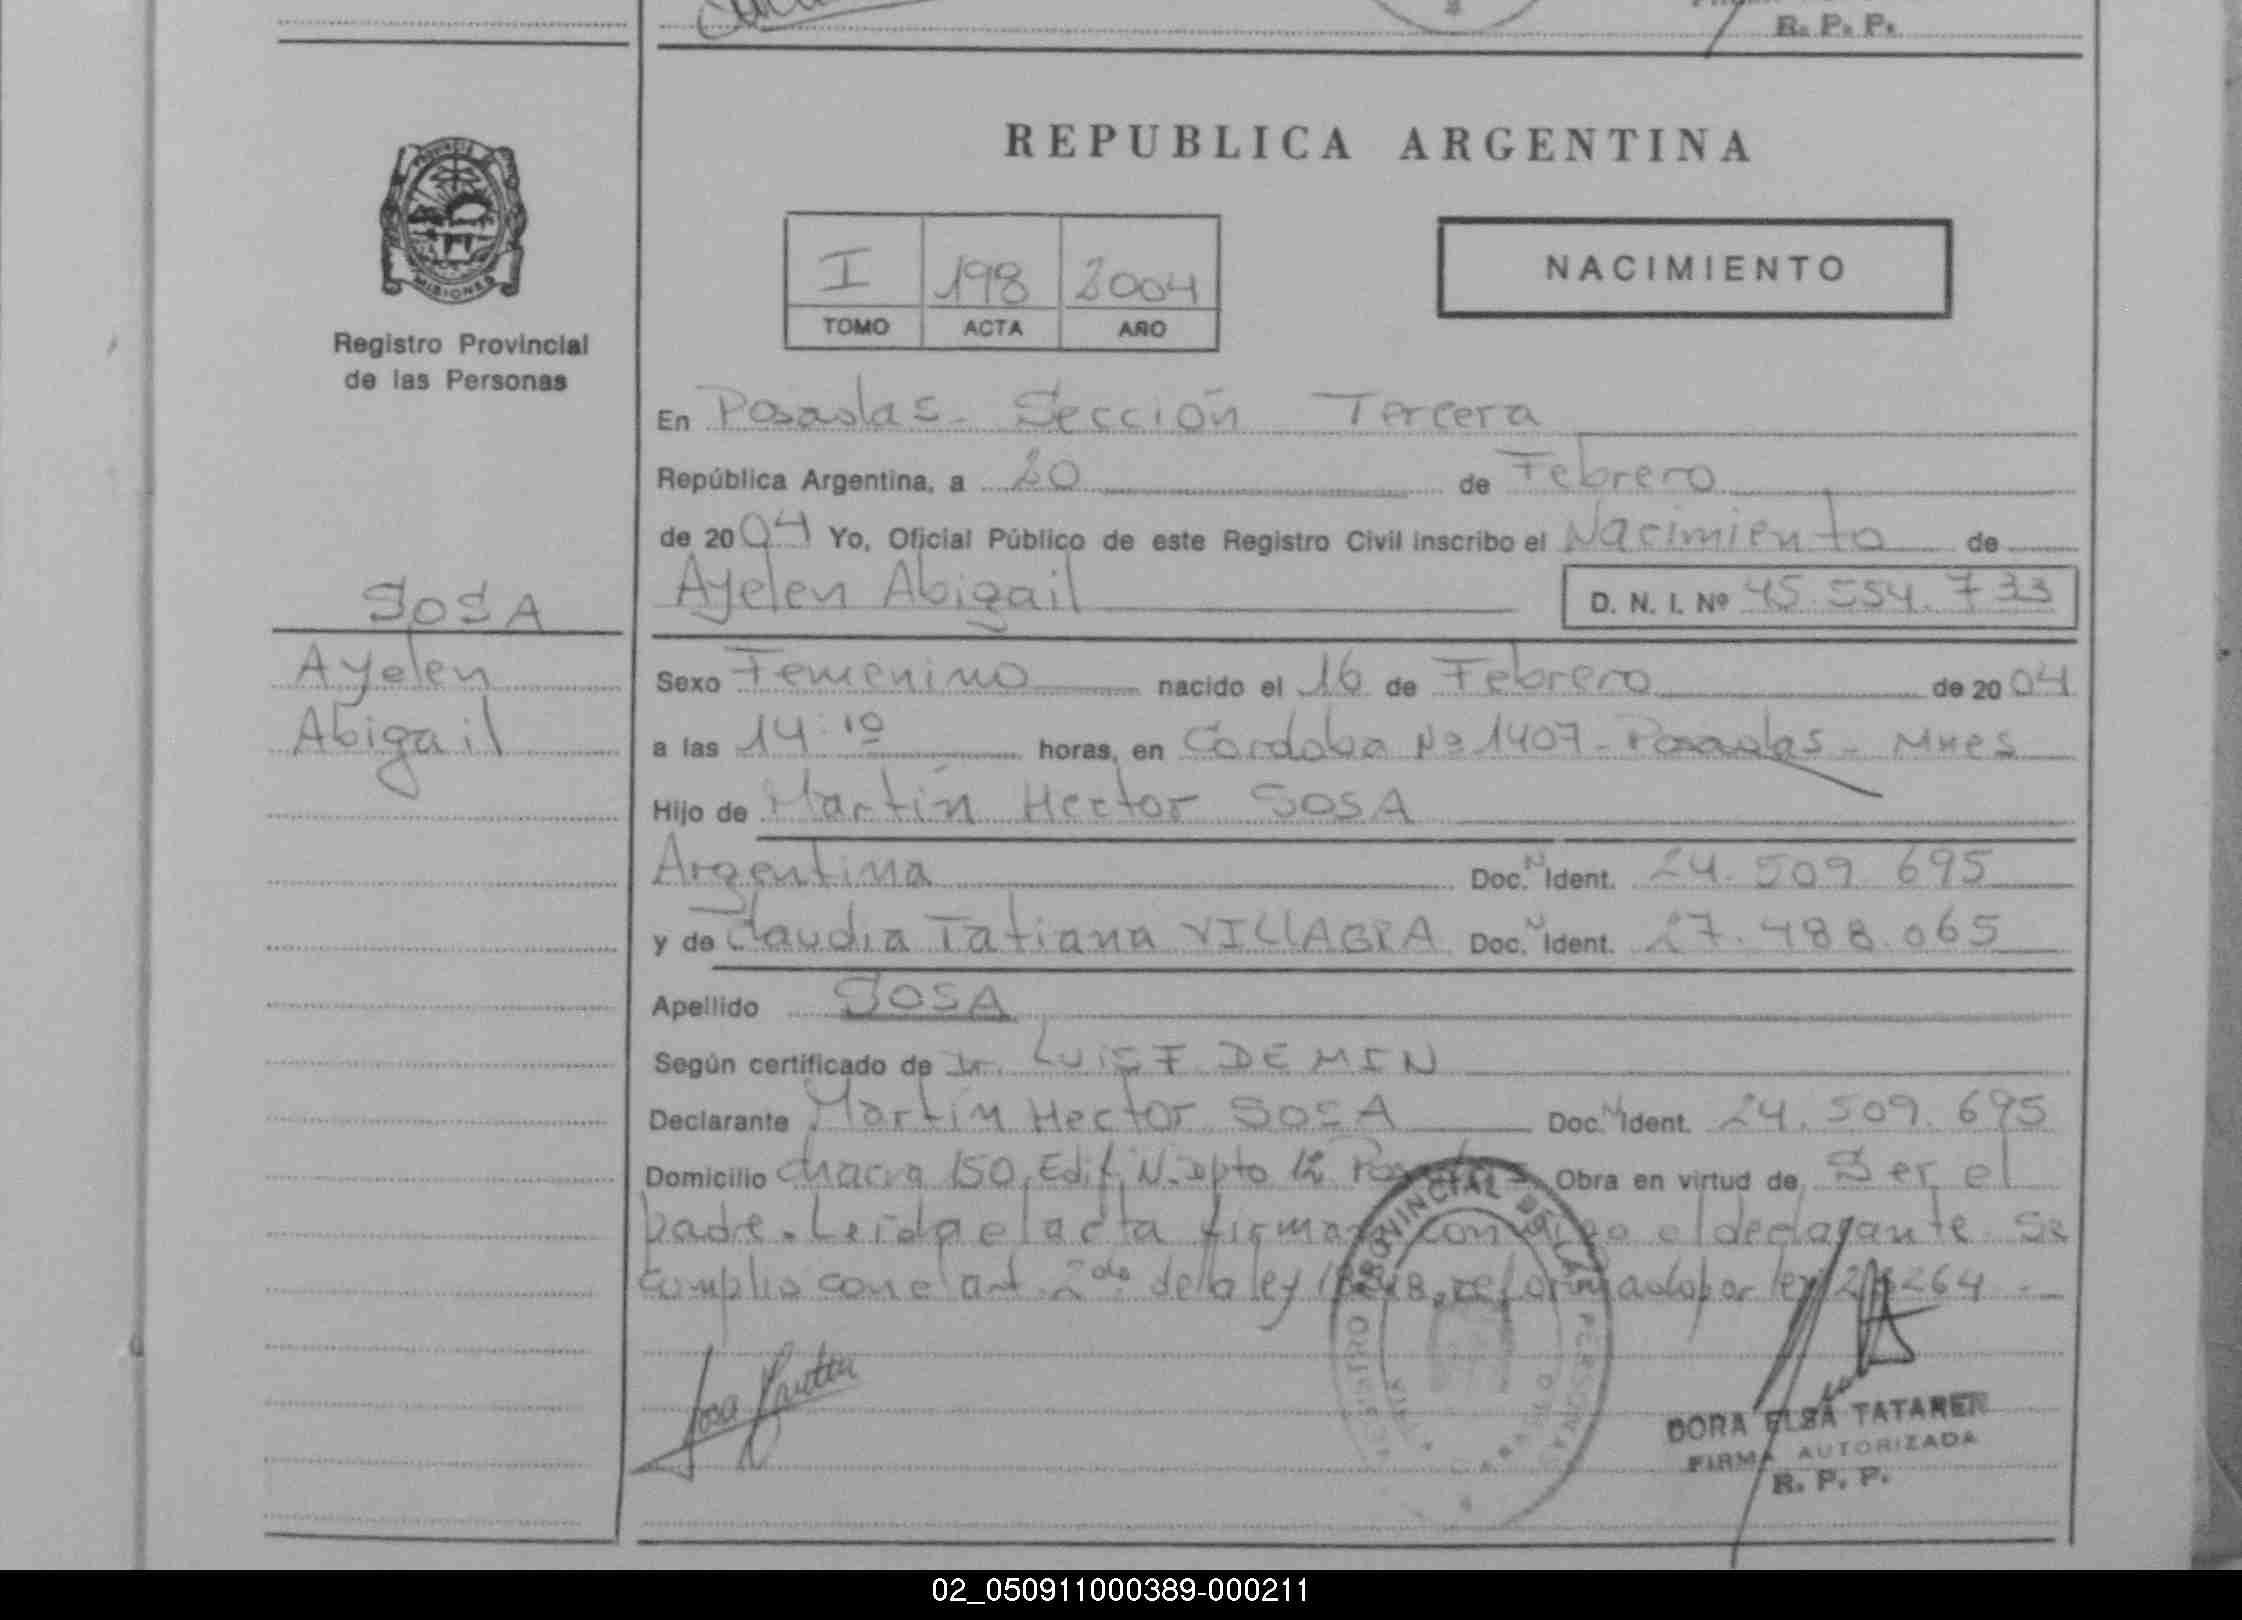 R. P. P.
REPUBLICA ARGENTINA
PROVINCIA DE
MISIONES
Registro Provincial
de las Personas
I 198 2004
TOMO ACTA AÑO
NACIMIENTO
En Posadas - Sección Tercera
República Argentina, a 20 de Febrero
de 2004 Yo, Oficial Público de este Registro Civil inscribo el Nacimiento de
Ayelen Abigail D. N. I. Nº 45.554.733
SOSA
Ayelen
Abigail
Sexo Femenino nacido el 16 de Febrero de 2004
a las 14:10 horas, en Cordoba Nº 1407 - Posadas - Mnes
Hijo de Martín Hector SOSA
Argentina Doc. N Ident. 24.509.695
y de Claudia Tatiana VILLAGRA Doc. N Ident. 27.488.065
Apellido SOSA
Según certificado de Dr. LUIS F. DEMIN
Declarante Martín Hector SOSA Doc. N Ident. 24.509.695
Domicilio chacra 150, Edif. N. Dpto 12 Posadas Obra en virtud de Ser el
padre. Leída el acta firman conmigo el declarante. Se
cumplio con el art. 2do de la ley 18248, reformado por ley 23264 . -
Sosa Martin
REGISTRO PROVINCIAL DE LAS PERSONAS
DORA ELSA TATAREN
FIRMA AUTORIZADA
R. P. P.
02_050911000389-000211